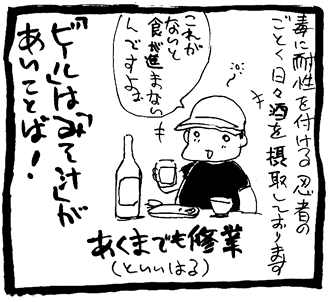 毒に耐性を付ける忍者の
ごとく日々酒を摂取しております
これが
ないと
食が進まない
んですよね
あくまでも修業
(といいはる)
「ビール」は「みて汁」が
あいことば!